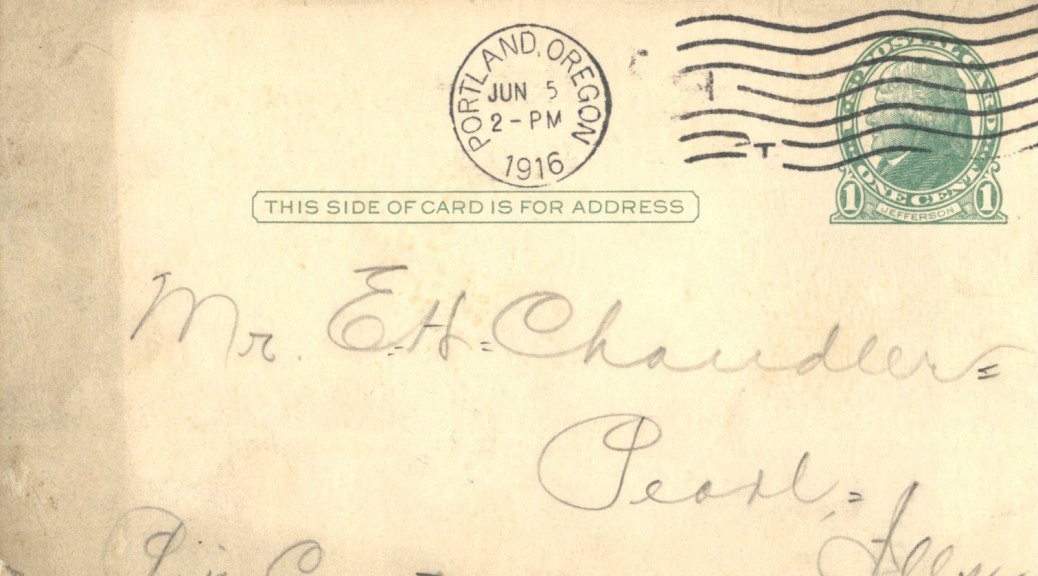 PORTLAND, OREGON
JUN 5
2-PM
1916
U.S. POSTAL CARD
ONE CENT
1 JEFFERSON 1
THIS SIDE OF CARD IS FOR ADDRESS
Mr. E. H. Chandler
Pearl,